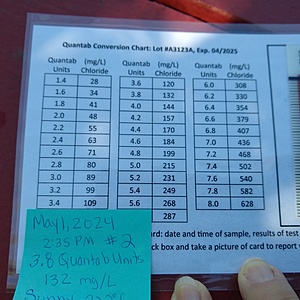 Quantab Conversion Chart: Lot #A3123A, Exp. 04/2025
Quantab (mg/L) Quantab (mg/L) Quantab (mg/L)
Units Chloride Units Chloride Units Chloride
1.4 28 3.6 120 6.0 308
1.6 34 3.8 132 6.2 330
1.8 41 4.0 144 6.4 354
2.0 48 4.2 157 6.6 379
2.2 55 4.4 170 6.8 407
2.4 63 4.6 184 7.0 436
2.6 71 4.8 199 7.2 468
2.8 80 5.0 215 7.4 502
3.0 89 5.2 231 7.6 540
3.2 99 5.4 249 7.8 582
3.4 109 5.6 268 8.0 628
287
rd: date and time of sample, results of test
ck box and take a picture of card to report
May 1, 2024
2:35 PM #2
3.8 Quantab Units
132 mg/L
Sunny